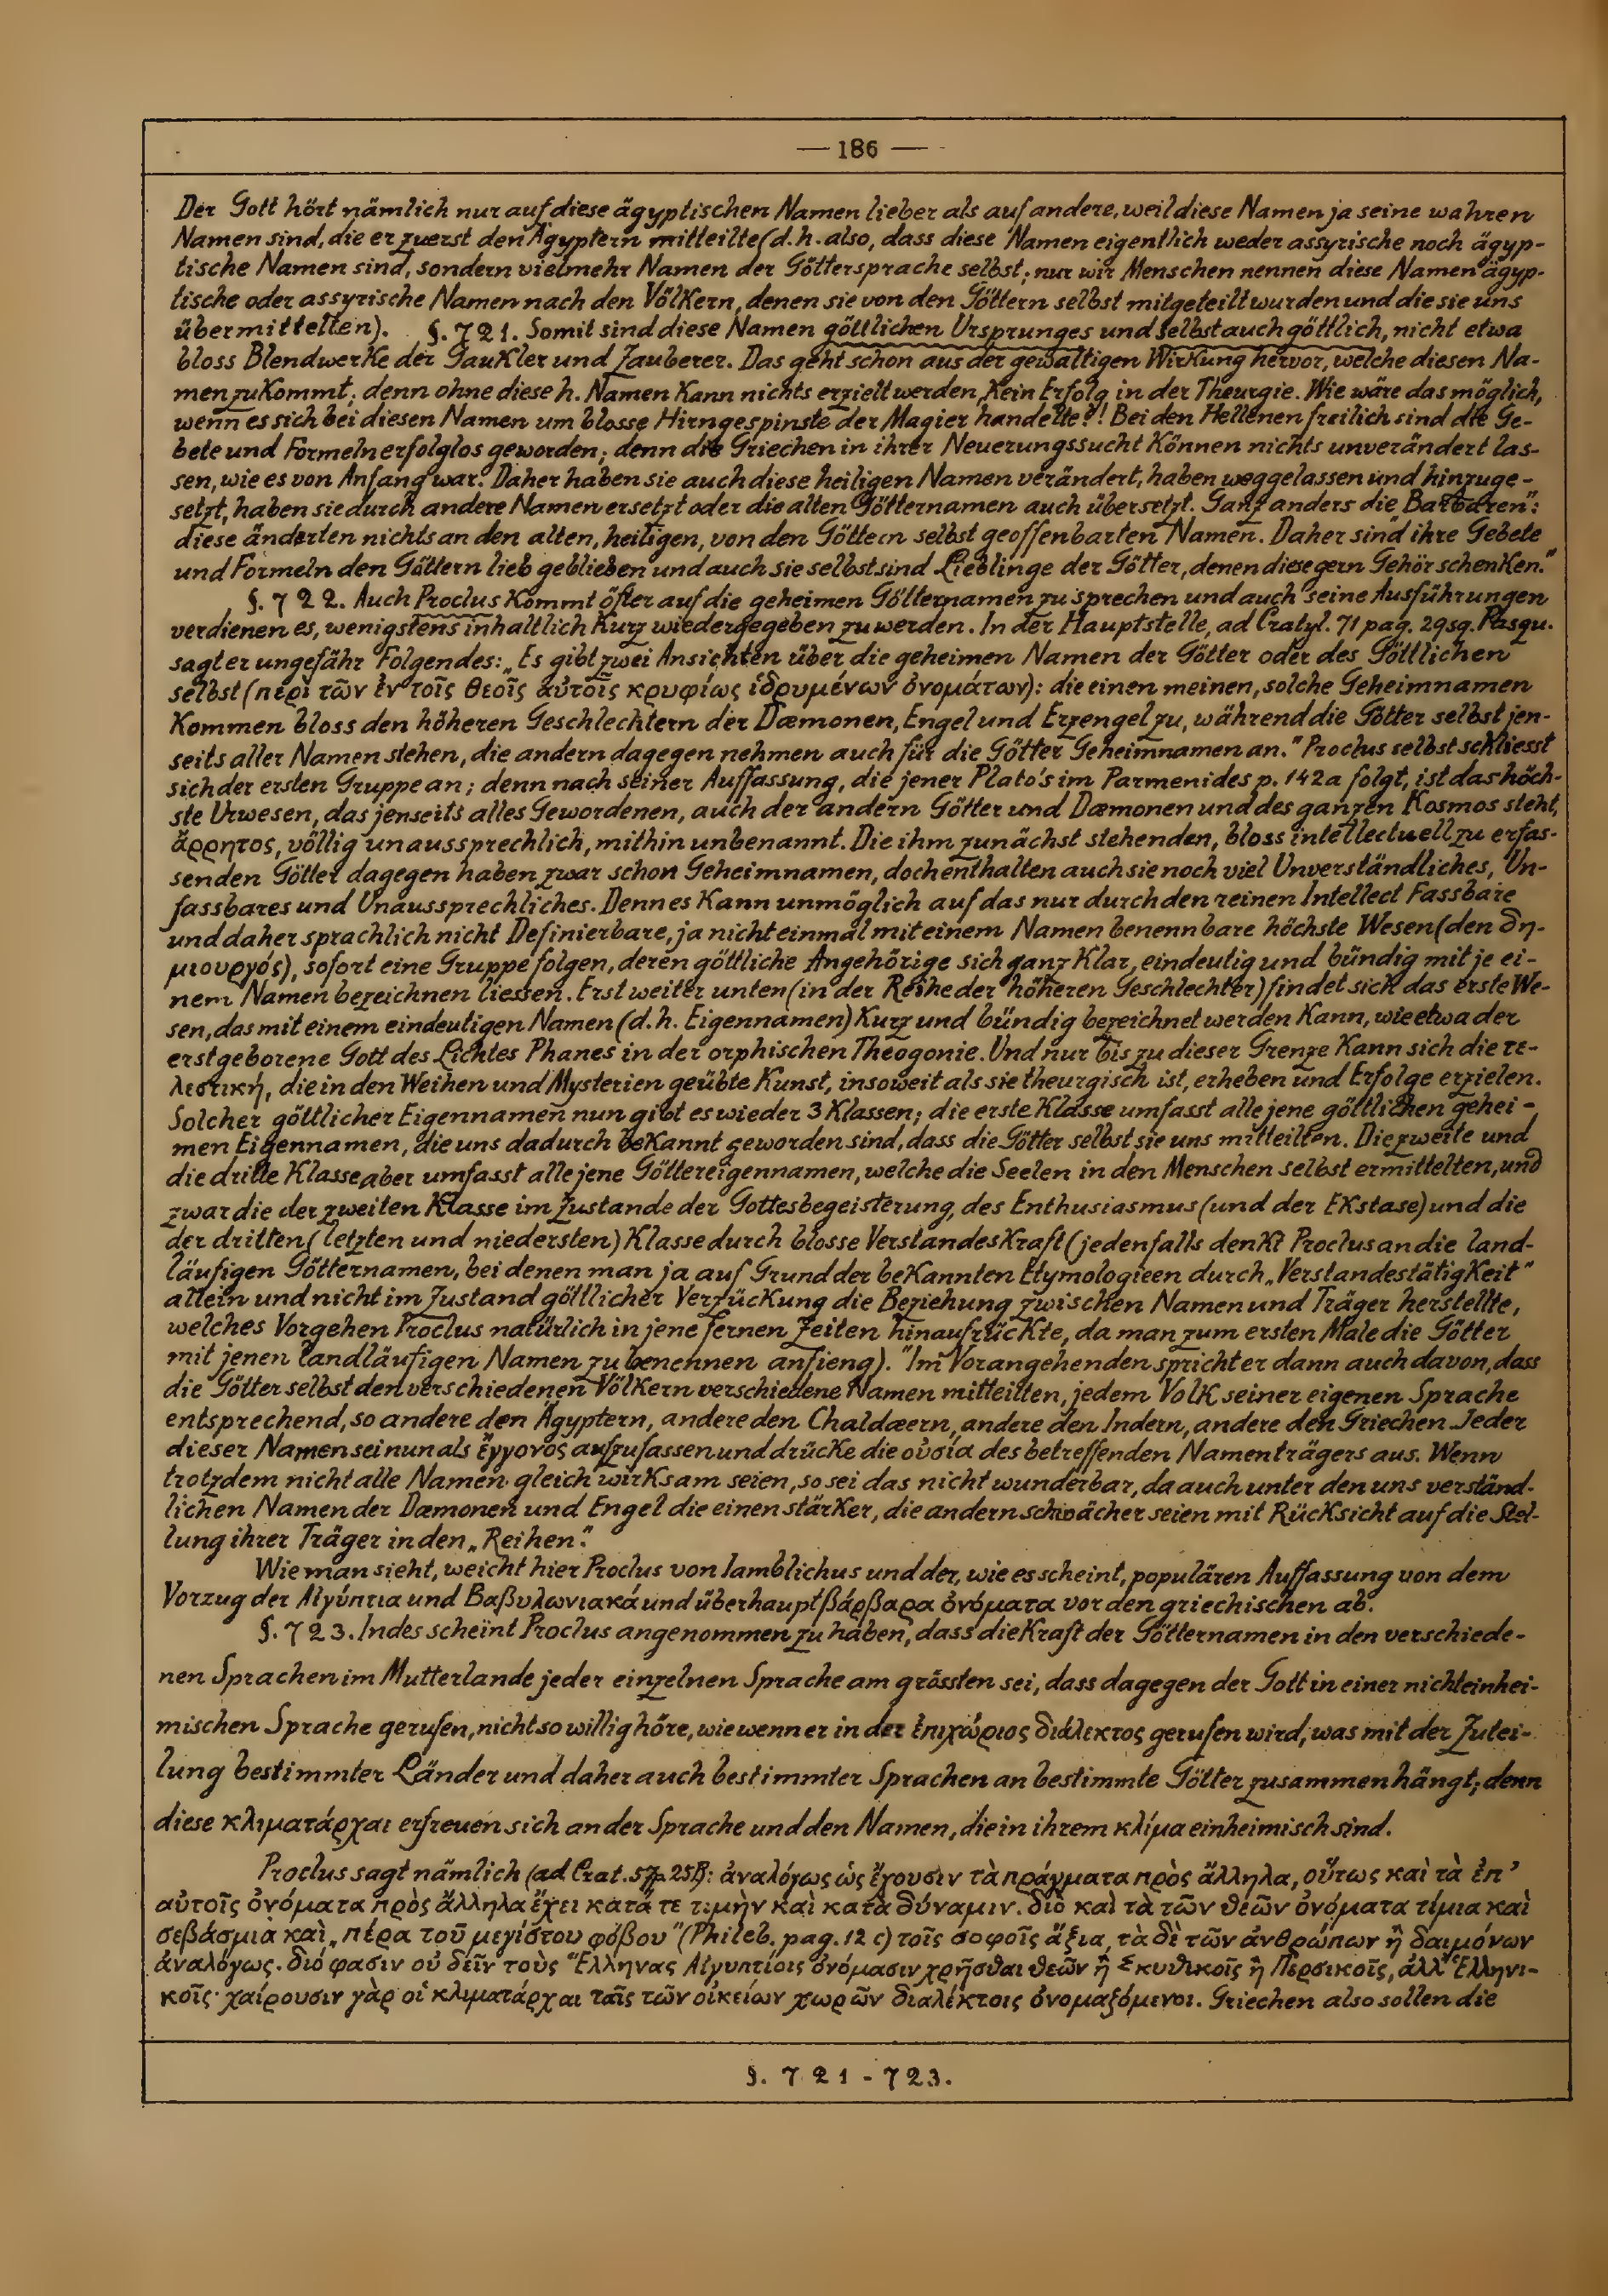 — 186 —
Der Gott hört nämlich nur auf diese ägyptischen Namen lieber als auf andere, weil diese Namen ja seine wahren
Namen sind, die er zuerst den Ägyptern mitteilte (d.h. also, dass diese Namen eigentlich weder assyrische noch ägyp-
tische Namen sind, sondern vielmehr Namen der Göttersprache selbst; nur wir Menschen nennen diese Namen ägyp-
tische oder assyrische Namen nach den Völkern, denen sie von den Göttern selbst mitgeteilt wurden und die sie uns
übermittelten). §. 721. Somit sind diese Namen göttlichen Ursprunges und selbst auch göttlich, nicht etwa
bloss Blendwerke der Gaukler und Zauberer. Das geht schon aus der gewaltigen Wirkung hervor, welche diesen Na-
men zukommt; denn ohne diese h. Namen kann nichts erzielt werden, kein Erfolg in der Theurgie. Wie wäre das möglich,
wenn es sich bei diesen Namen um blosse Hirngespinste der Magier handelte?! Bei den Hellenen freilich sind die Ge-
bete und Formeln erfolglos geworden; denn die Griechen in ihrer Neuerungssucht können nichts unverändert las-
sen, wie es von Anfang war. Daher haben sie auch diese heiligen Namen verändert, haben weggelassen und hinzuge-
setzt, haben sie durch andere Namen ersetzt oder die alten Götternamen auch übersetzt. Ganz anders die „Barbaren":
diese änderten nichts an den alten, heiligen, von den Göttern selbst geoffenbarten Namen. Daher sind ihre Gebete
und Formeln den Göttern lieb geblieben und auch sie selbst sind Lieblinge der Götter, denen diese gern Gehör schenken."
§. 722. Auch Proclus kommt öfter auf die geheimen Götternamen zu sprechen und auch seine Ausführungen
verdienen es, wenigstens inhaltlich kurz wiedergegeben zu werden. In der Hauptstelle, ad Cratyl. 71 pag. 29sq. Pasqu.
sagt er ungefähr Folgendes: „Es gibt zwei Ansichten über die geheimen Namen der Götter oder des Göttlichen
selbst (περὶ τῶν ἐν τοῖς θεοῖς αὐτοῖς κρυφίως ἱδρυμένων ὀνομάτων): die einen meinen, solche Geheimnamen
kommen bloss den höheren Geschlechtern der Dæmonen, Engel und Erzengel zu, während die Götter selbst jen-
seits aller Namen stehen, die andern dagegen nehmen auch für die Götter Geheimnamen an." Proclus selbst schliesst
sich der ersten Gruppe an; denn nach seiner Auffassung, die jener Plato's im Parmenides p. 142a folgt, ist das höch-
ste Urwesen, das jenseits alles Gewordenen, auch der andern Götter und Dæmonen und des ganzen Kosmos steht,
ἄρρητος, völlig unaussprechlich, mithin unbenannt. Die ihm zunächst stehenden, bloss intellectuell zu erfas-
senden Götter dagegen haben zwar schon Geheimnamen, doch enthalten auch sie noch viel Unverständliches, Un-
fassbares und Unaussprechliches. Denn es kann unmöglich auf das nur durch den reinen Intellect Fassbare
und daher sprachlich nicht Definierbare, ja nicht einmal mit einem Namen benennbare höchste Wesen (den δη-
μιουργός), sofort eine Gruppe folgen, deren göttliche Angehörige sich ganz klar, eindeutig und bündig mit je ei-
nem Namen bezeichnen liessen. Erst weiter unten (in der Reihe der höheren Geschlechter) findet sich das erste We-
sen, das mit einem eindeutigen Namen (d.h. Eigennamen) kurz und bündig bezeichnet werden kann, wie etwa der
erstgeborene Gott des Lichtes Phanes in der orphischen Theogonie. Und nur bis zu dieser Grenze kann sich die τε-
λεστική, die in den Weihen und Mysterien geübte Kunst, insoweit als sie theurgisch ist, erheben und Erfolge erzielen.
Solcher göttlicher Eigennamen nun gibt es wieder 3 Klassen; die erste Klasse umfasst alle jene göttlichen gehei-
men Eigennamen, die uns dadurch bekannt geworden sind, dass die Götter selbst sie uns mitteilten. Die zweite und
die dritte Klasse aber umfasst alle jene Göttereigennamen, welche die Seelen in den Menschen selbst ermittelten, und
zwar die der zweiten Klasse im Zustande der Gottesbegeisterung, des Enthusiasmus (und der Ekstase) und die
der dritten (letzten und niedersten) Klasse durch blosse Verstandeskraft (jedenfalls denkt Proclus an die land-
läufigen Götternamen, bei denen man ja auf Grund der bekannten Etymologieen durch „Verstandestätigkeit"
allein und nicht im Zustand göttlicher Verzückung die Beziehung zwischen Namen und Träger herstellte,
welches Vorgehen Proclus natürlich in jene fernen Zeiten hinaufrückte, da man zum ersten Male die Götter
mit jenen landläufigen Namen zu benennen anfieng)." Im Vorangehenden spricht er dann auch davon, dass
die Götter selbst den verschiedenen Völkern verschiedene Namen mitteilten, jedem Volk seiner eigenen Sprache
entsprechend, so andere den Ägyptern, andere den Chaldæern, andere den Indern, andere den Griechen. Jeder
dieser Namen sei nun als ἔγγονος aufzufassen und drücke die οὐσία des betreffenden Namenträgers aus. Wenn
trotzdem nicht alle Namen gleich wirksam seien, so sei das nicht wunderbar, da auch unter den uns verständ-
lichen Namen der Dæmonen und Engel die einen stärker, die andern schwächer seien mit Rücksicht auf die Stel-
lung ihrer Träger in den „Reihen".
Wie man sieht, weicht hier Proclus von Iamblichus und der, wie es scheint, populären Auffassung von dem
Vorzug der Αἰγύπτια und Βαβυλωνιακά und überhaupt βάρβαρα ὀνόματα vor den griechischen ab.
§. 723. Indes scheint Proclus angenommen zu haben, dass die Kraft der Götternamen in den verschiede-
nen Sprachen im Mutterlande jeder einzelnen Sprache am grössten sei, dass dagegen der Gott in einer nichteinhei-
mischen Sprache gerufen, nicht so willig höre, wie wenn er in der ἐπιχώριος διάλεκτος gerufen wird, was mit der Zutei-
lung bestimmter Länder und daher auch bestimmter Sprachen an bestimmte Götter zusammenhängt; denn
diese κλιματάρχαι erfreuen sich an der Sprache und den Namen, die in ihrem κλίμα einheimisch sind.
Proclus sagt nämlich (ad Crat. 57 p. 25P): ἀναλόγως ὡς ἔχουσιν τὰ πράγματα πρὸς ἄλληλα, οὕτως καὶ τὰ ἐπ'
αὐτοῖς ὀνόματα πρὸς ἄλληλα ἔχει κατά τε τιμὴν καὶ κατὰ δύναμιν. διὸ καὶ τὰ τῶν θεῶν ὀνόματα τίμια καὶ
σεβάσμια καὶ „πέρα τοῦ μεγίστου φόβου" (Phileb. pag. 12 c) τοῖς σοφοῖς ἄξια, τὰ δὲ τῶν ἀνθρώπων ἢ δαιμόνων
ἀναλόγως. διό φασιν οὐ δεῖν τοὺς Ἕλληνας Αἰγυπτίοις ὀνόμασιν χρῆσθαι θεῶν ἢ Σκυθικοῖς ἢ Περσικοῖς, ἀλλ' Ἑλληνι-
κοῖς· χαίρουσιν γὰρ οἱ κλιματάρχαι ταῖς τῶν οἰκείων χωρῶν διαλέκτοις ὀνομαζόμενοι. Griechen also sollen die
§. 721 - 723.